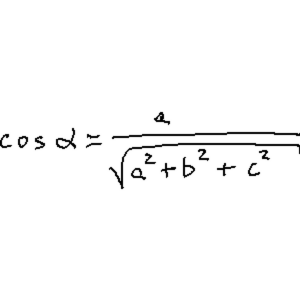 cos α = a / √(a² + b² + c²)